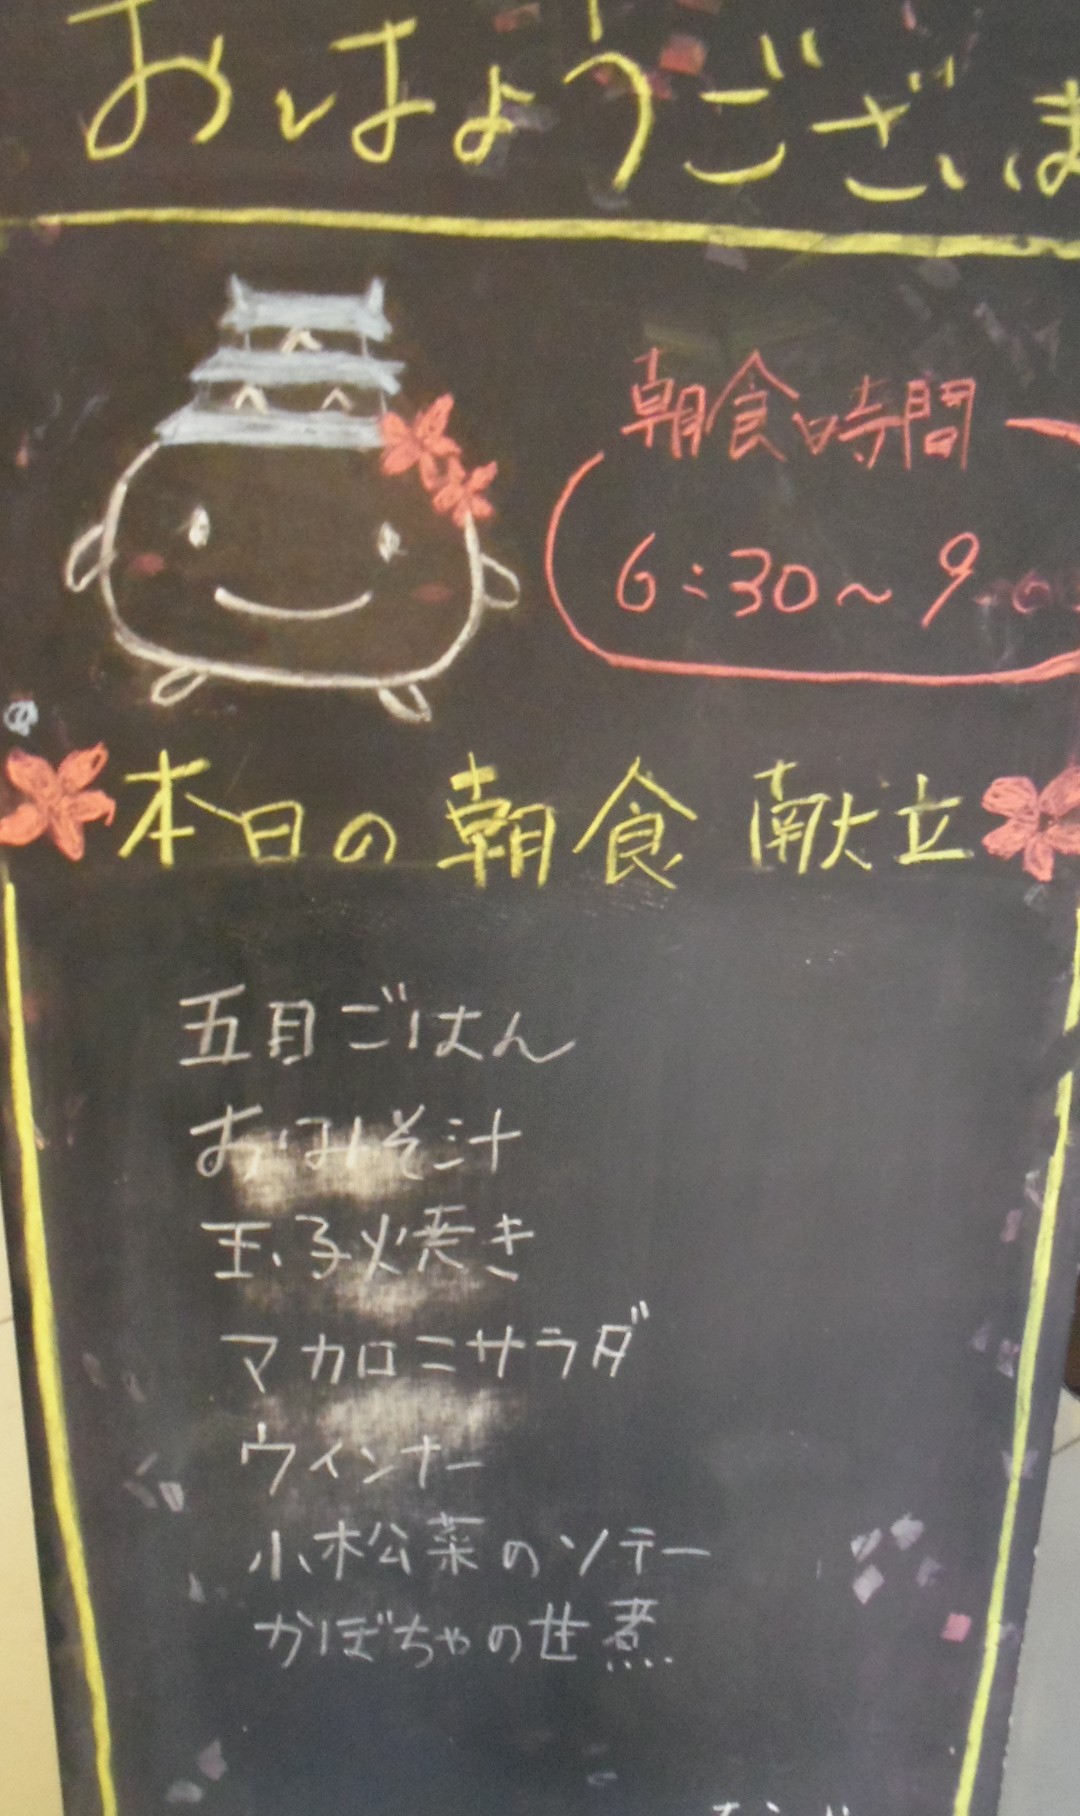 おはようございま
朝食時間
6:30～9
本日の朝食 献立
五目ごはん
おみそ汁
玉子焼き
マカロニサラダ
ウィンナー
小松菜のソテー
かぼちゃの甘煮